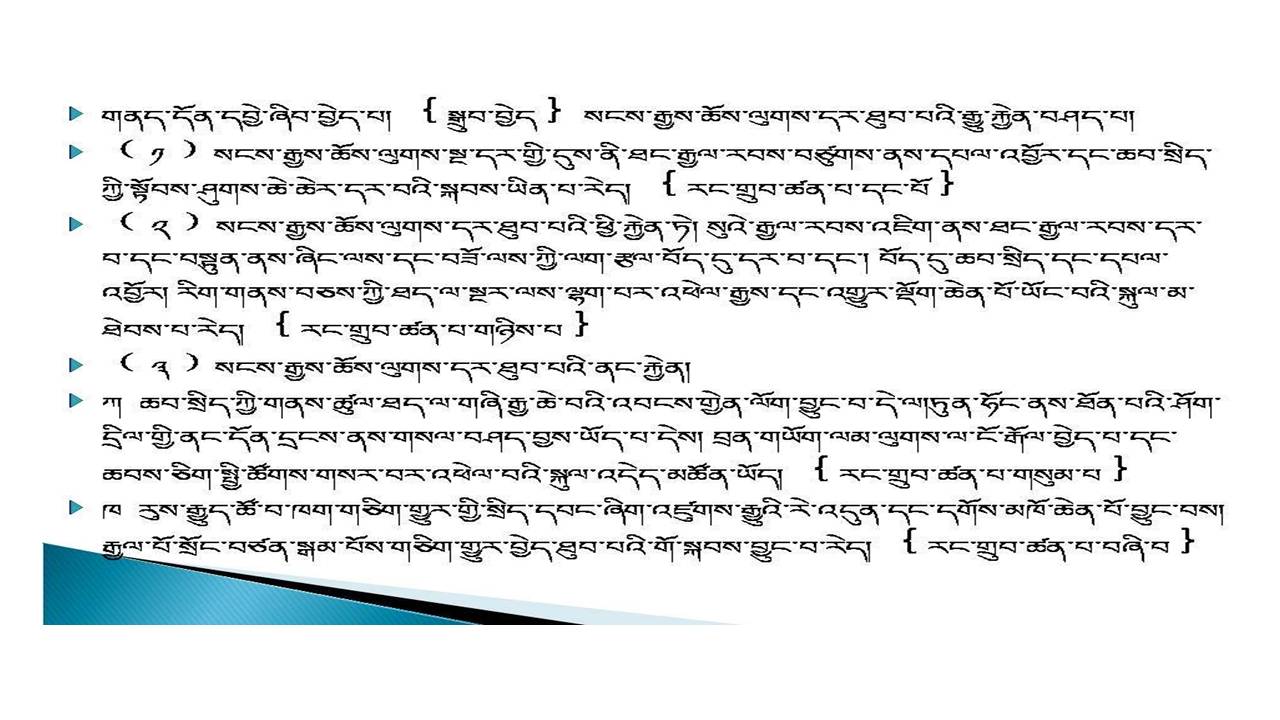 གནད་དོན་དབྱེ་ཞིབ་བྱེད་པ། { སྒྲུབ་བྱེད } སངས་རྒྱས་ཆོས་ལུགས་དར་ཐུབ་པའི་རྒྱུ་རྐྱེན་བཤད་པ།
( ༡ ) སངས་རྒྱས་ཆོས་ལུགས་སྔ་དར་གྱི་དུས་ནི་ཐང་རྒྱལ་རབས་བཙུགས་ནས་དཔལ་འབྱོར་དང་ཆབ་སྲིད་
ཀྱི་སྟོབས་ཤུགས་ཆེ་ཆེར་དར་བའི་སྐབས་ཡིན་པ་རེད། { རང་གྲུབ་ཚན་པ་དང་པོ }
( ༢ ) སངས་རྒྱས་ཆོས་ལུགས་དར་ཐུབ་པའི་ཕྱི་རྐྱེན་ཏེ། སུའེ་རྒྱལ་རབས་འཇིག་ནས་ཐང་རྒྱལ་རབས་དར་
བ་དང་བསྟུན་ནས་ཞིང་ལས་དང་བཟོ་ལས་ཀྱི་ལག་རྩལ་བོད་དུ་དར་བ་དང་། བོད་དུ་ཆབ་སྲིད་དང་དཔལ་
འབྱོར། རིག་གནས་བཅས་ཀྱི་ཐད་ལ་སྔར་ལས་ལྷག་པར་འཕེལ་རྒྱས་དང་འགྱུར་ལྡོག་ཆེན་པོ་ཡོང་བའི་སྐུལ་མ་
ཐེབས་པ་རེད། { རང་གྲུབ་ཚན་པ་གཉིས་པ }
( ༣ ) སངས་རྒྱས་ཆོས་ལུགས་དར་ཐུབ་པའི་ནང་རྐྱེན།
ཀ། ཆབ་སྲིད་ཀྱི་གནས་ཚུལ་ཐད་ལ་གཞི་རྒྱ་ཆེ་བའི་འབངས་གྱེན་ལོག་བྱུང་བ་དེ་ལ།ཏུན་ཧོང་ནས་ཐོན་པའི་ཤོག་
དྲིལ་གྱི་ནང་དོན་དྲངས་ནས་གསལ་བཤད་བྱས་ཡོད་པ་དེས། བྲན་གཡོག་ལམ་ལུགས་ལ་ངོ་རྒོལ་བྱེད་པ་དང་
ཆབས་ཅིག་སྤྱི་ཚོགས་གསར་བར་འཕེལ་བའི་སྐུལ་འདེད་མཚོན་ཡོད། { རང་གྲུབ་ཚན་པ་གསུམ་པ }
ཁ རུས་རྒྱུད་ཚོ་བ་ཁག་གཅིག་གྱུར་གྱི་སྲིད་དབང་ཞིག་འཛུགས་རྒྱུའི་རེ་འདུན་དང་དགོས་མཁོ་ཆེན་པོ་བྱུང་བས།
རྒྱལ་པོ་སྲོང་བཙན་སྒམ་པོས་གཅིག་གྱུར་བྱེད་ཐུབ་པའི་གོ་སྐབས་བྱུང་བ་རེད། { རང་གྲུབ་ཚན་པ་བཞི་བ }